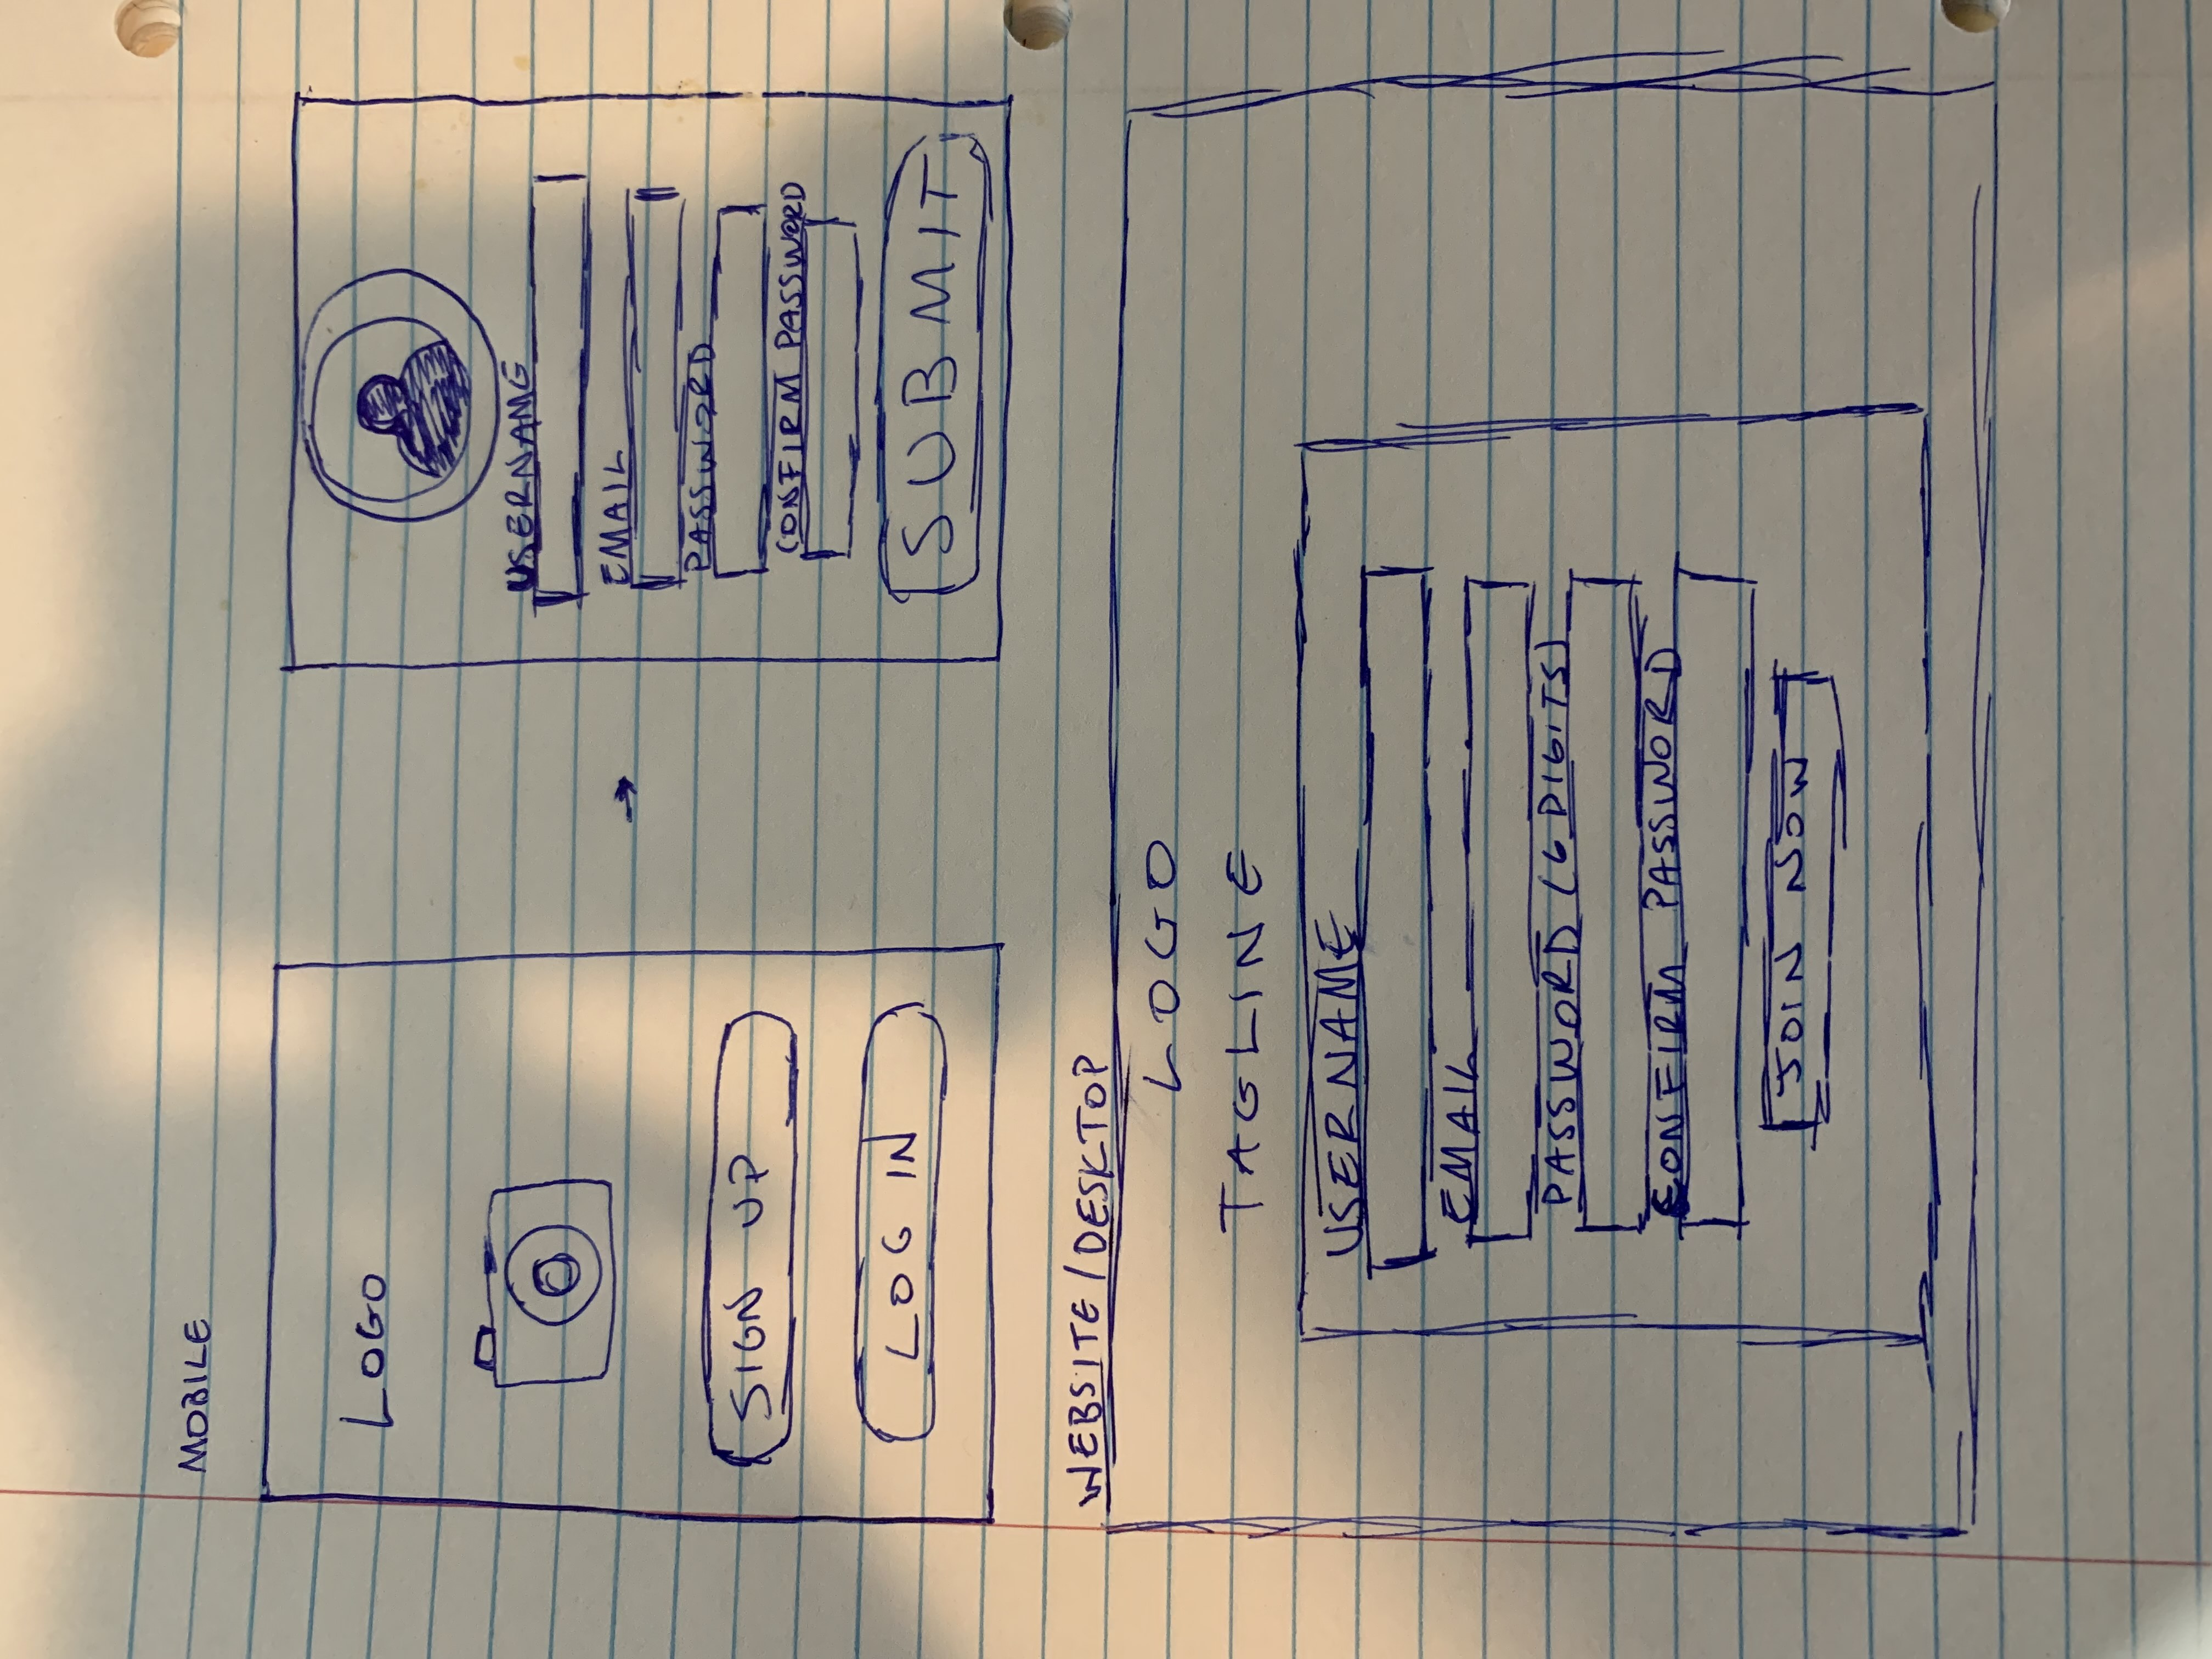 MOBILE
LOGO
SIGN UP
LOG IN
USERNAME
EMAIL
PASSWORD
CONFIRM PASSWORD
SUBMIT
WEBSITE/DESKTOP
LOGO
TAGLINE
USERNAME
EMAIL
PASSWORD (6 DIGITS)
CONFIRM PASSWORD
JOIN NOW